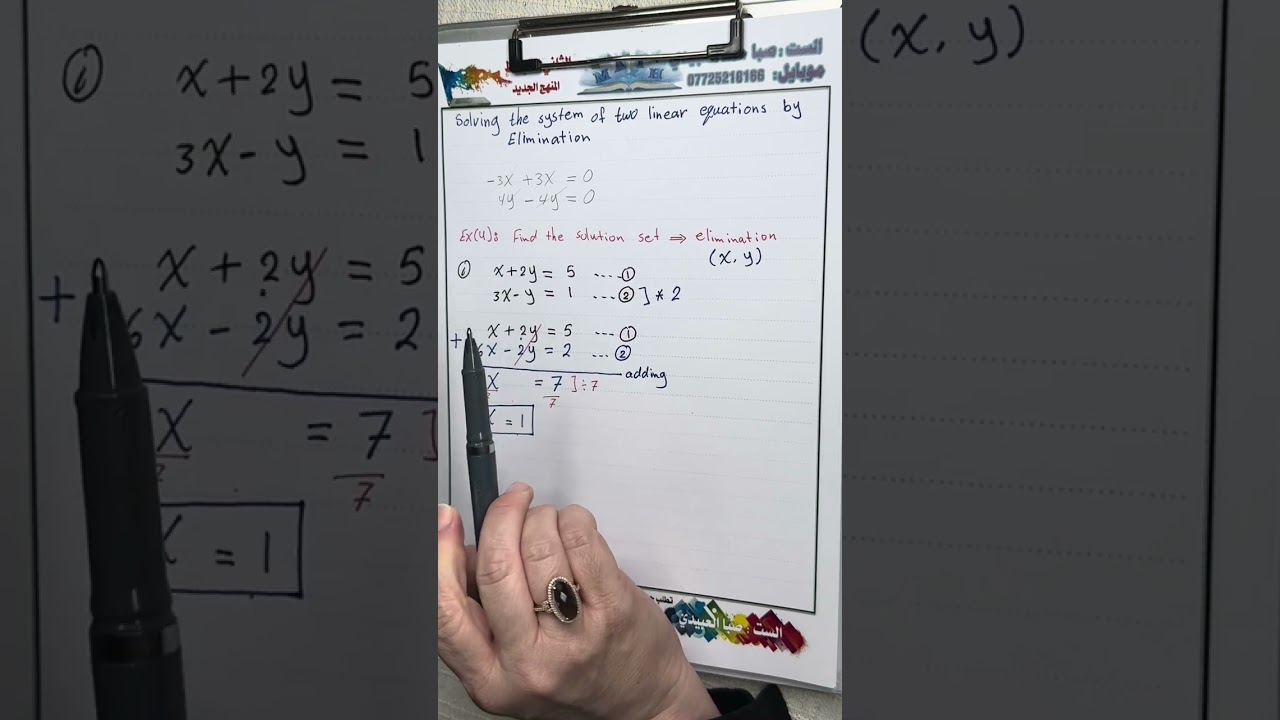 الست : صبا
موبايل: 07725216166
المنهج الجديد
Solving the system of two linear equations by
Elimination
-3x + 3x = 0
4y - 4y = 0
Ex(4): Find the solution set ⇒ elimination
(x, y)
i x + 2y = 5 .... 1
3x - y = 1 ... 2 ] * 2
+ x + 2y = 5 ... 1
6x - 2y = 2 ... 2
adding
x = 7 ] ÷ 7
7
x = 1
الست : صبا العبيدي
i x + 2y = 5
3x - y = 1
+ x + 2y = 5
6x - 2y = 2
x = 7 ]
7
x = 1
(x, y)